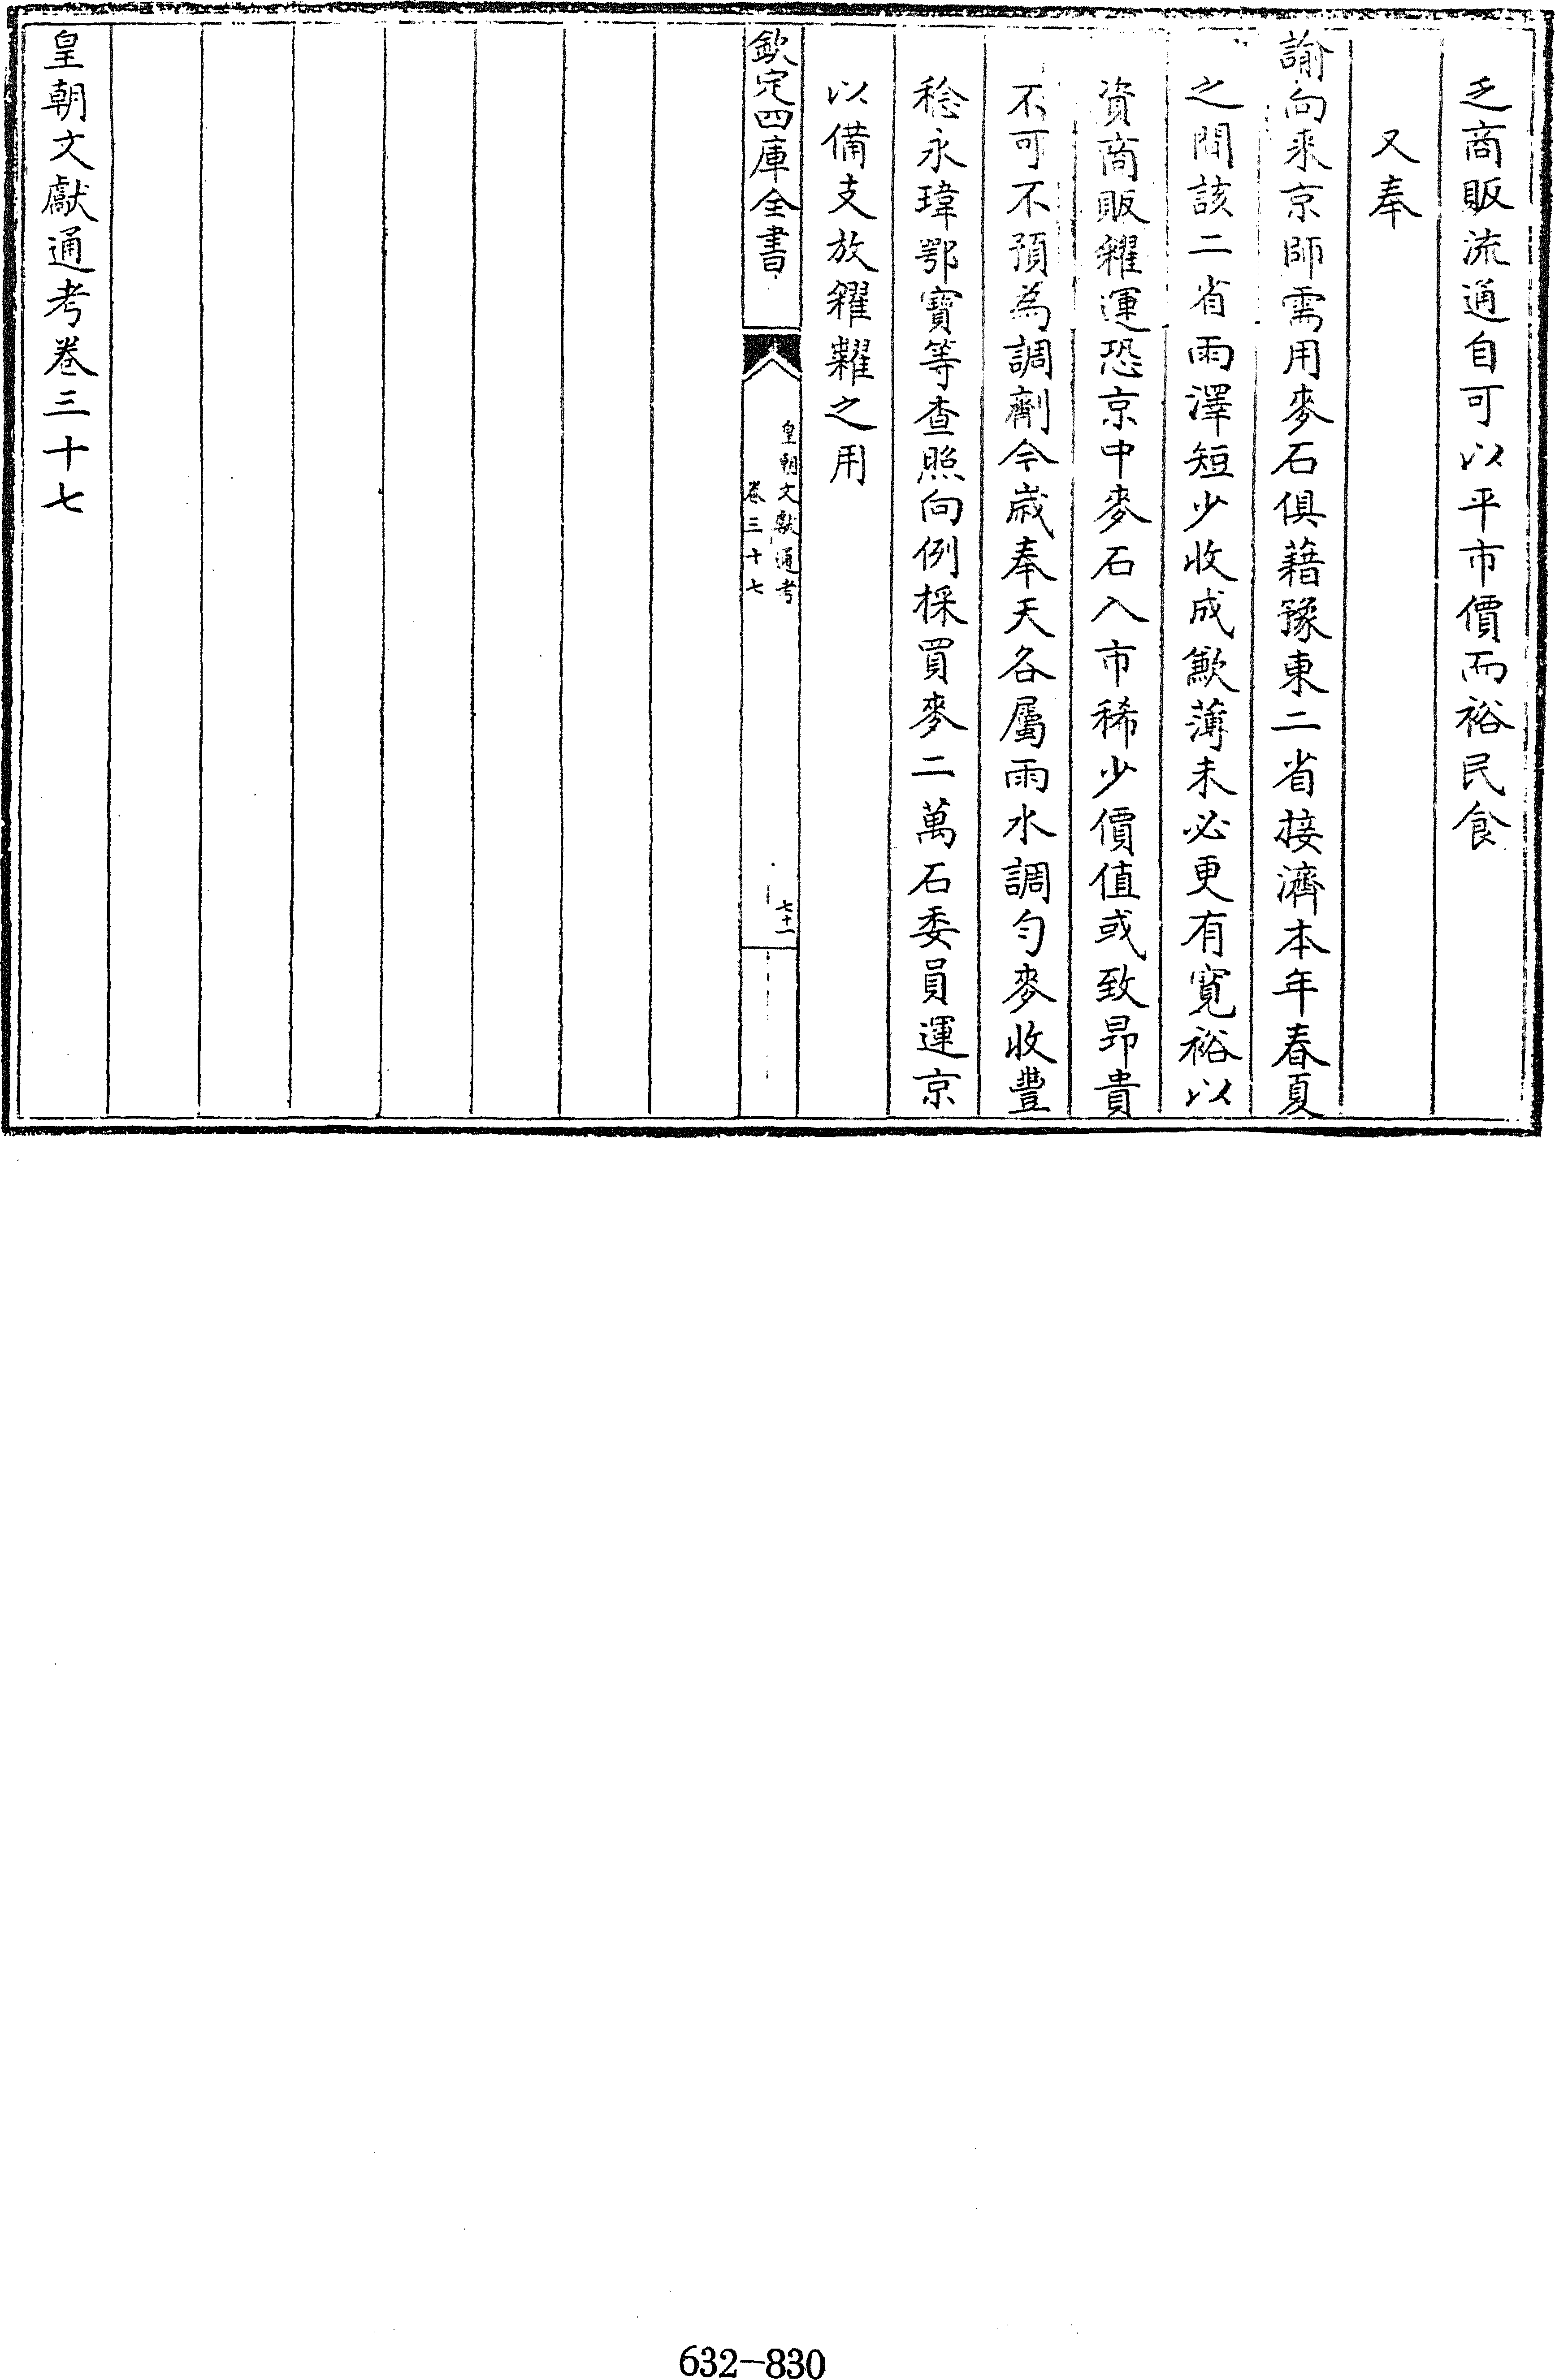 乏商販流通自可以平市價而裕民食
又奉
諭向来京師需用麥石俱藉豫東二省接濟本年春夏
之間該二省雨澤短少收成歉薄未必更有寛裕以
資商販糴運恐京中麥石入市稀少價值或致昂貴
不可不預為調劑今歲奉天各屬雨水調勻麥收豐
稔永瑋鄂寶等查照向例採買麥二萬石委員運京
以備支放糴糶之用
欽定四庫全書
皇朝文獻通考
卷三十七
七十一
皇朝文獻通考卷三十七
632-830